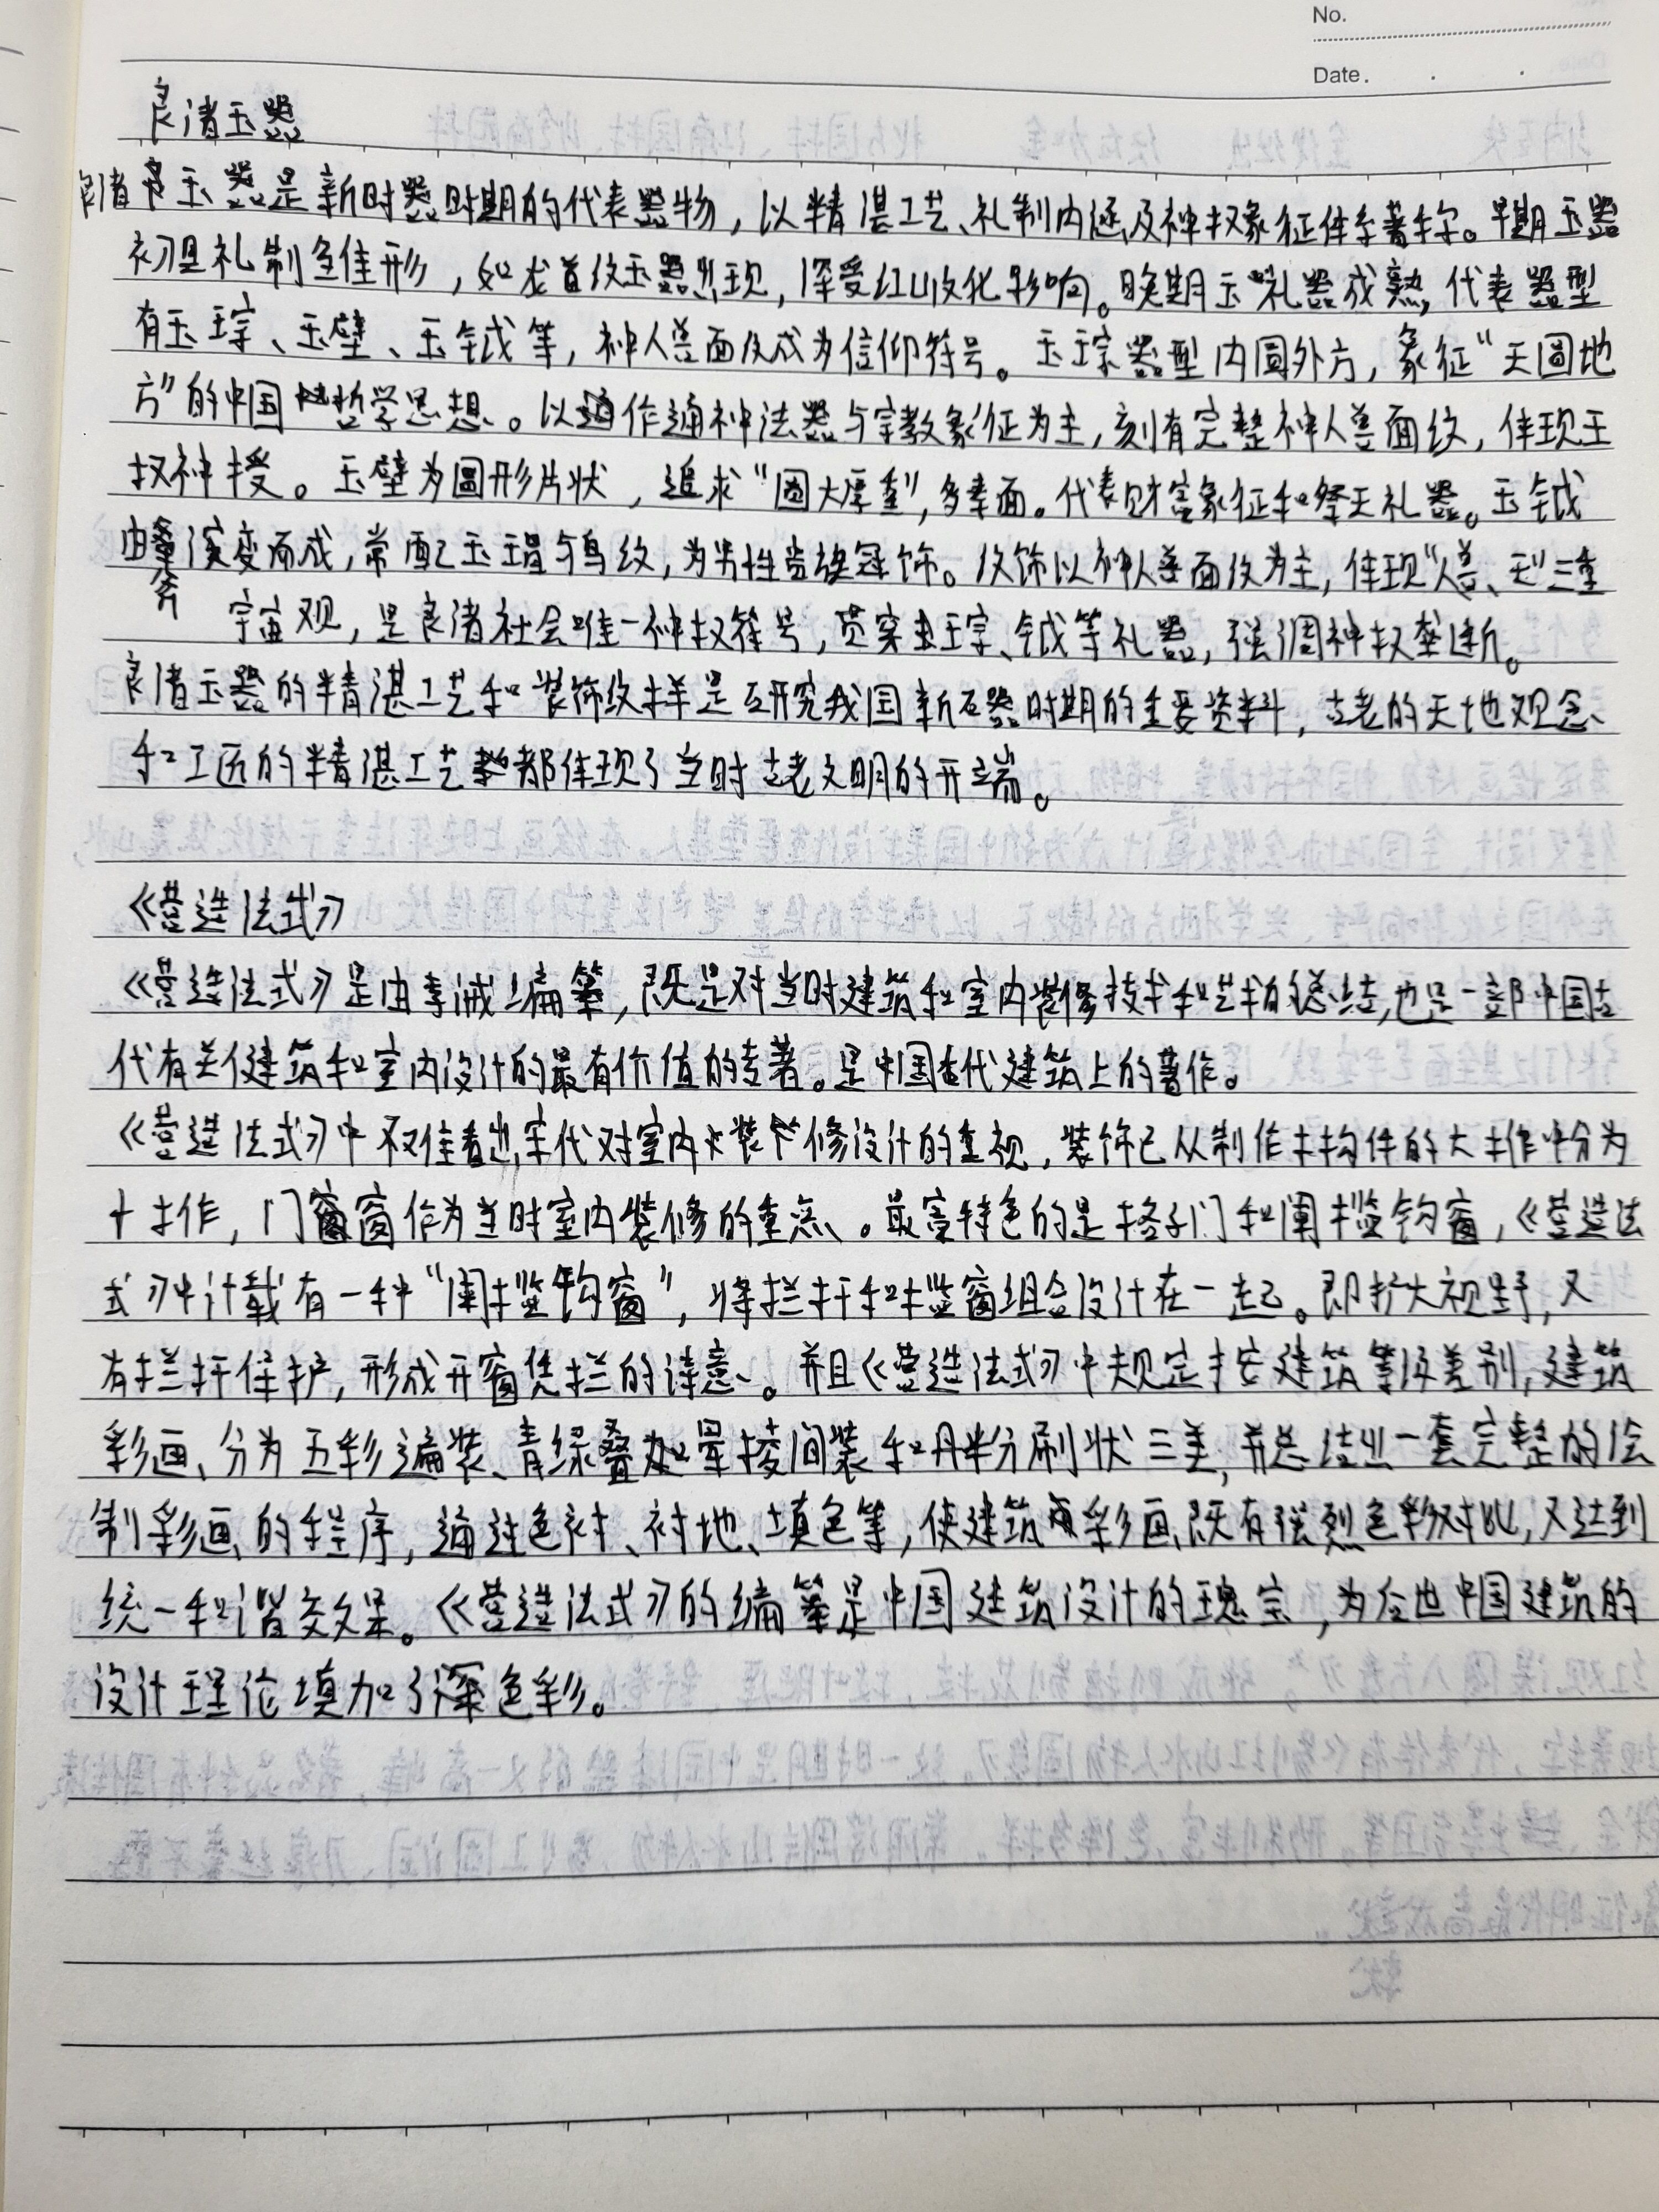 No.
Date.
良渚玉器
良渚玉器是新时器时期的代表器物，以精湛工艺、礼制内涵及神权象征体系著称。早期玉器
初显礼制雏形，如龙首纹玉器出现，深受红山文化影响。晚期玉礼器成熟，代表器型
有玉琮、玉璧、玉钺等，神人兽面纹成为信仰符号。玉琮器型内圆外方，象征“天圆地
方”的中国哲学思想。以作通神法器与宗教象征为主，刻有完整神人兽面纹，体现王
权神授。玉璧为圆形片状，追求“圆大厚重”，多素面。代表财富象征和祭天礼器。玉钺
由斧演变而成，常配玉瑁与鸟纹，为男性贵族冠饰。纹饰以神人兽面纹为主，体现“人、兽、天”三重
宇宙观，是良渚社会唯一神权符号，贯穿琮、钺等礼器，强调神权垄断。
良渚玉器的精湛工艺和装饰纹样是研究我国新石器时期的重要资料，古老的天地观念
和工匠的精湛工艺都体现了当时古老文明的开端。
《营造法式》
《营造法式》是由李诫编纂，既是对当时建筑和室内装修技术和艺术的总结，也是一部中国古
代有关建筑和室内设计的最有价值的专著。是中国古代建筑上的著作。
《营造法式》中不难看出，宋代对室内装修设计的重视，装饰已从制作木构件的大木作中分为
小木作，门窗作为当时室内装修的重点。最富特色的是格子门和阑槛钩窗，《营造法
式》中计载有一种“阑槛钩窗”，将拦杆和槛窗组合设计在一起。即扩大视野，又
有拦杆保护，形成开窗凭拦的诗意。并且《营造法式》中规定按建筑等级差别，建筑
彩画、分为五彩遍装、青绿叠晕棱间装和丹粉刷状三类，并总结出一套完整的绘
制彩画的程序，通过色衬、衬地、填色等，使建筑彩画既有强烈色彩对比，又达到
统一和谐效果。《营造法式》的编纂是中国建筑设计的瑰宝，为后世中国建筑的
设计理论填加了深色彩。